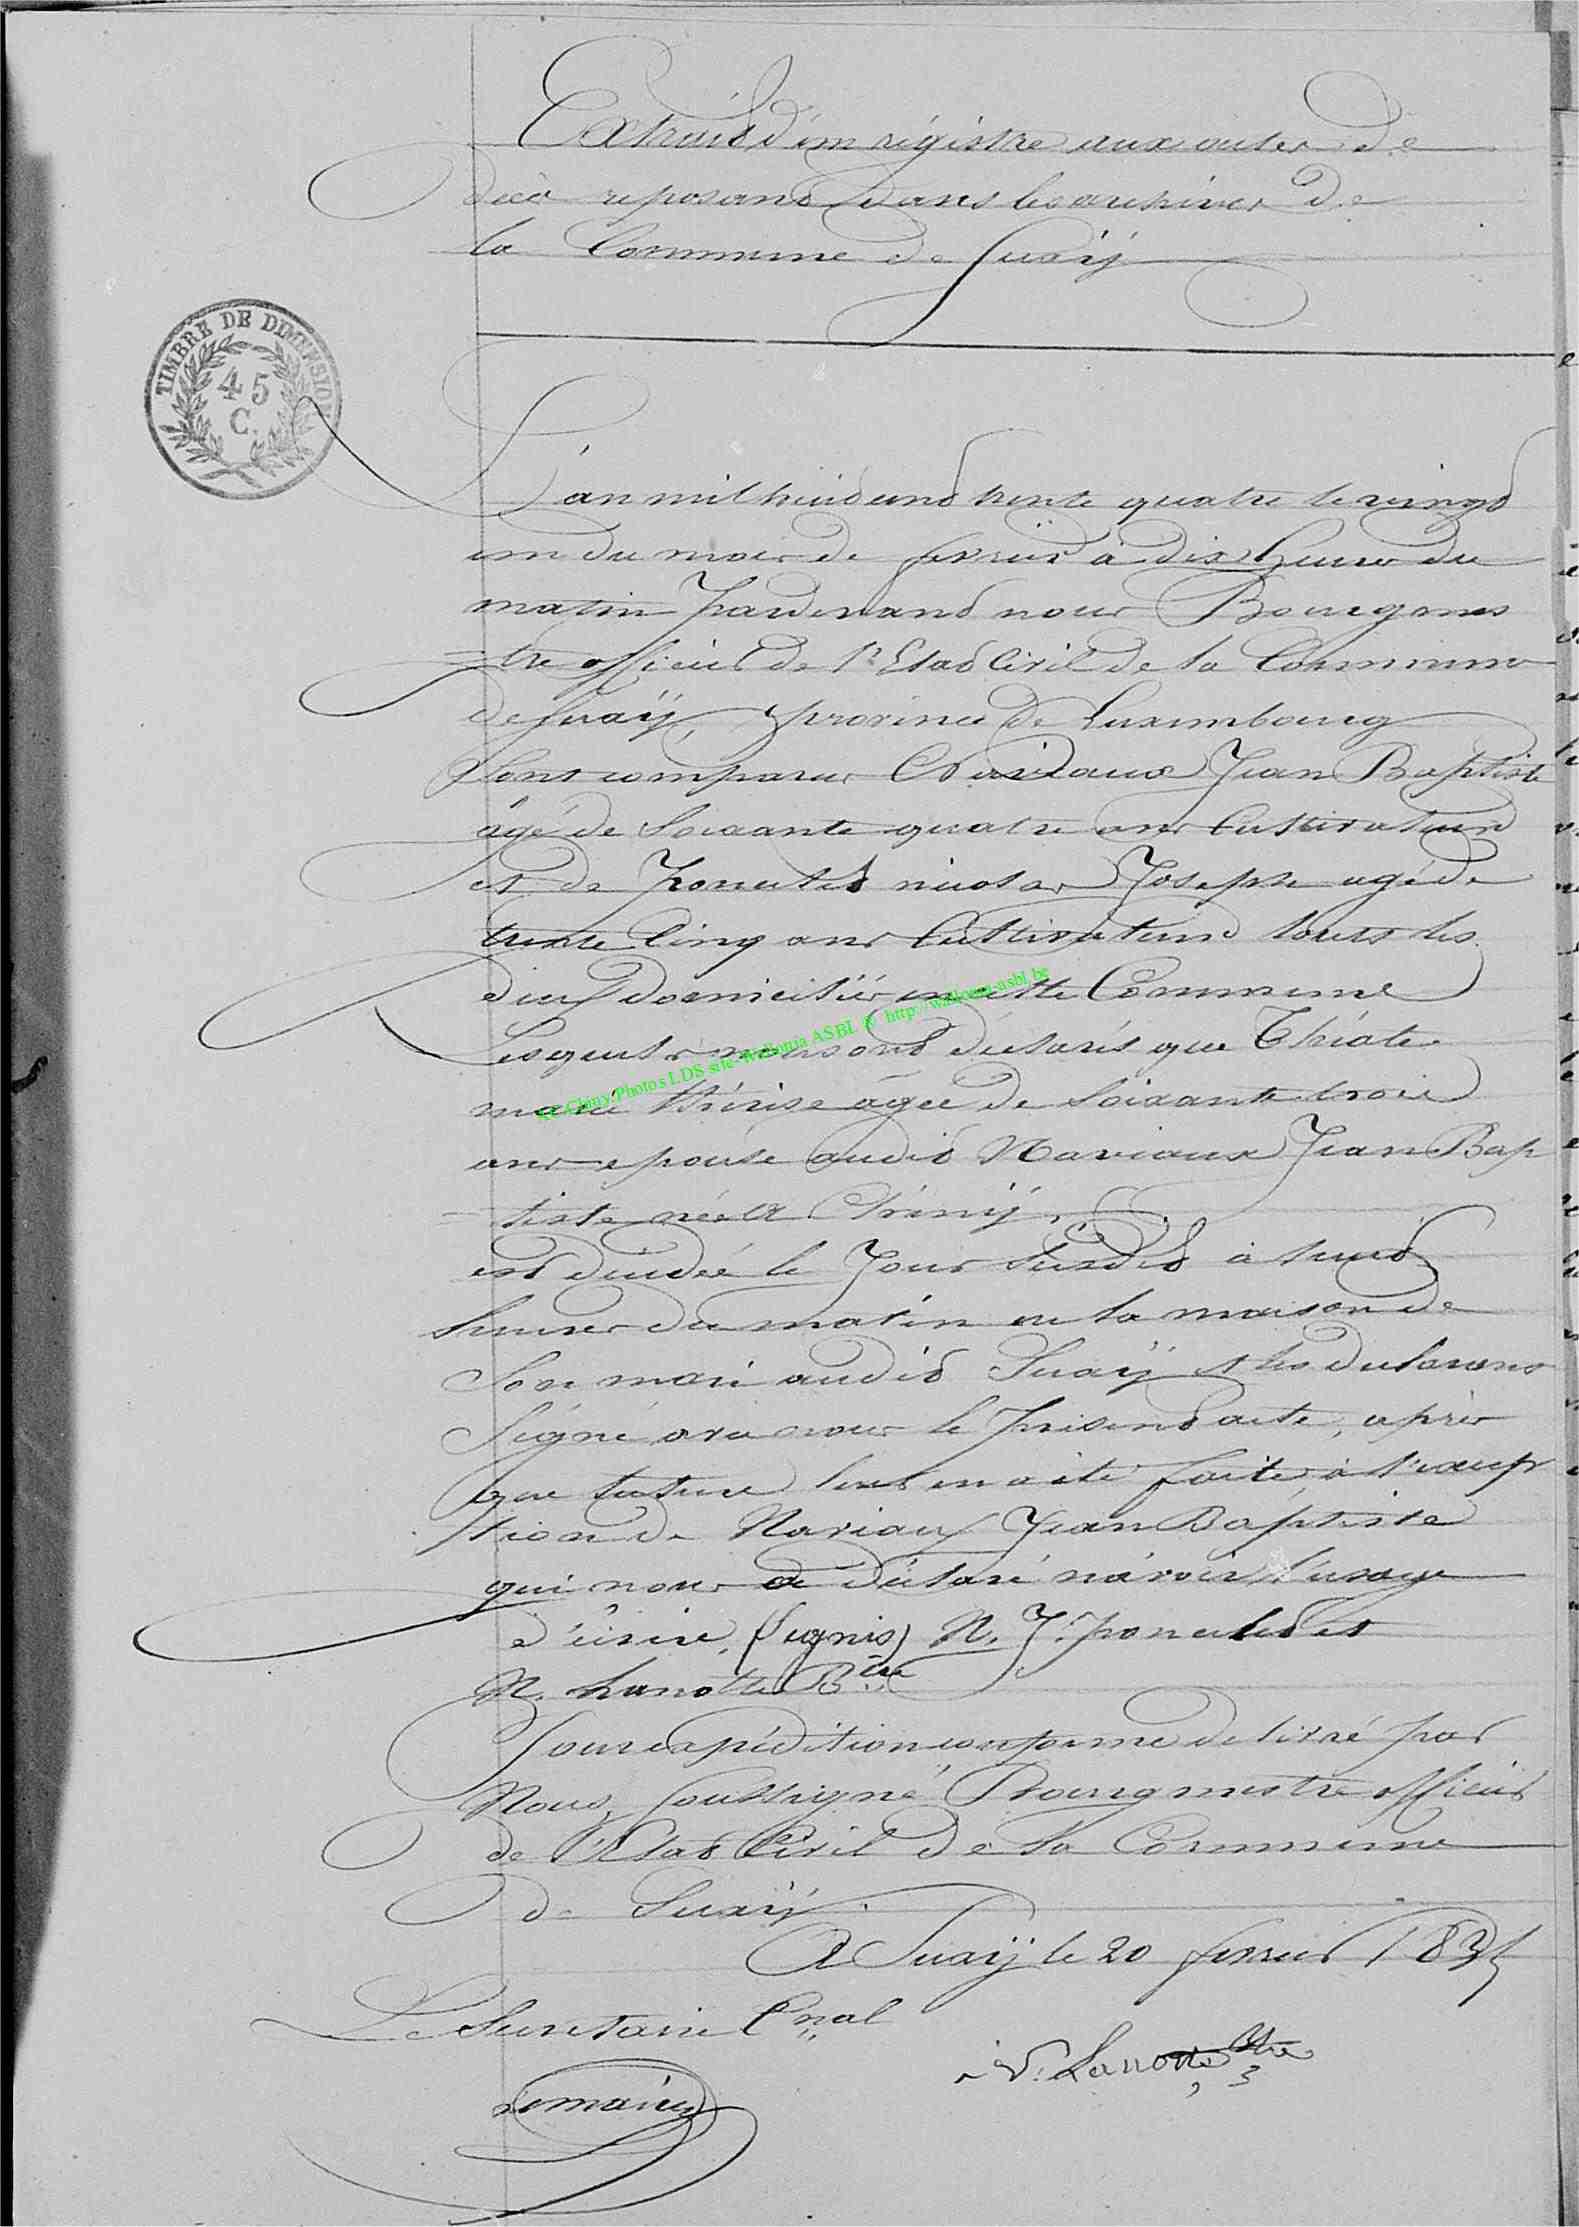 Extrait d'un régistre aux actes de
décès reposant dans les archives de
la Commune de Suxÿ
TIMBRE DE DIMENSION
45
C.
L'an mil huit cent trente quatre le vingt
un du mois de fevrier à dix heures du
matin Pardevant nous Bourgmes
-tre officier de l'Etat Civil de la Commune
de Suxÿ, province de Luxembourg
Sont comparus Naviaux Jean Baptiste
âgé de Soixante quatre ans Cultivateur
et de Poncelet nicolas Joseph agé de
trente Cinq ans Cultivateur touts les
deux domiciliés en cette Commune
Lesquels nous ont déclarés que Thiate
marie Thérèse âgée de Soixante trois
ans epouse audit Naviaux Jean Bap
-tiste née a Chiny,
est décédée le Jour Susdit à huit
heures du matin en la maison de
Son mari audit Suxÿ et les declarans
Signé avec nous le présent acte, après
que lecture leur en a été faite, à l'excep
-tion de Naviaux Jean Baptiste
qui nous a déclaré n'avoir l'usage
d'écrire, (Signés) N. J. Poncelet et
N. Lanotte B.tre
Pour expédition conforme delivré par
Nous Soussigné Bourgmestre officier
de l'Etat Civil de la Commune
de Suxÿ
A Suxÿ le 20 fevrier 183
Le Secretaire C.nal
N. Lanotte Btre
AC Chiny Photos LDS site Wallonia ASBL © http://wallonia-asbl.be